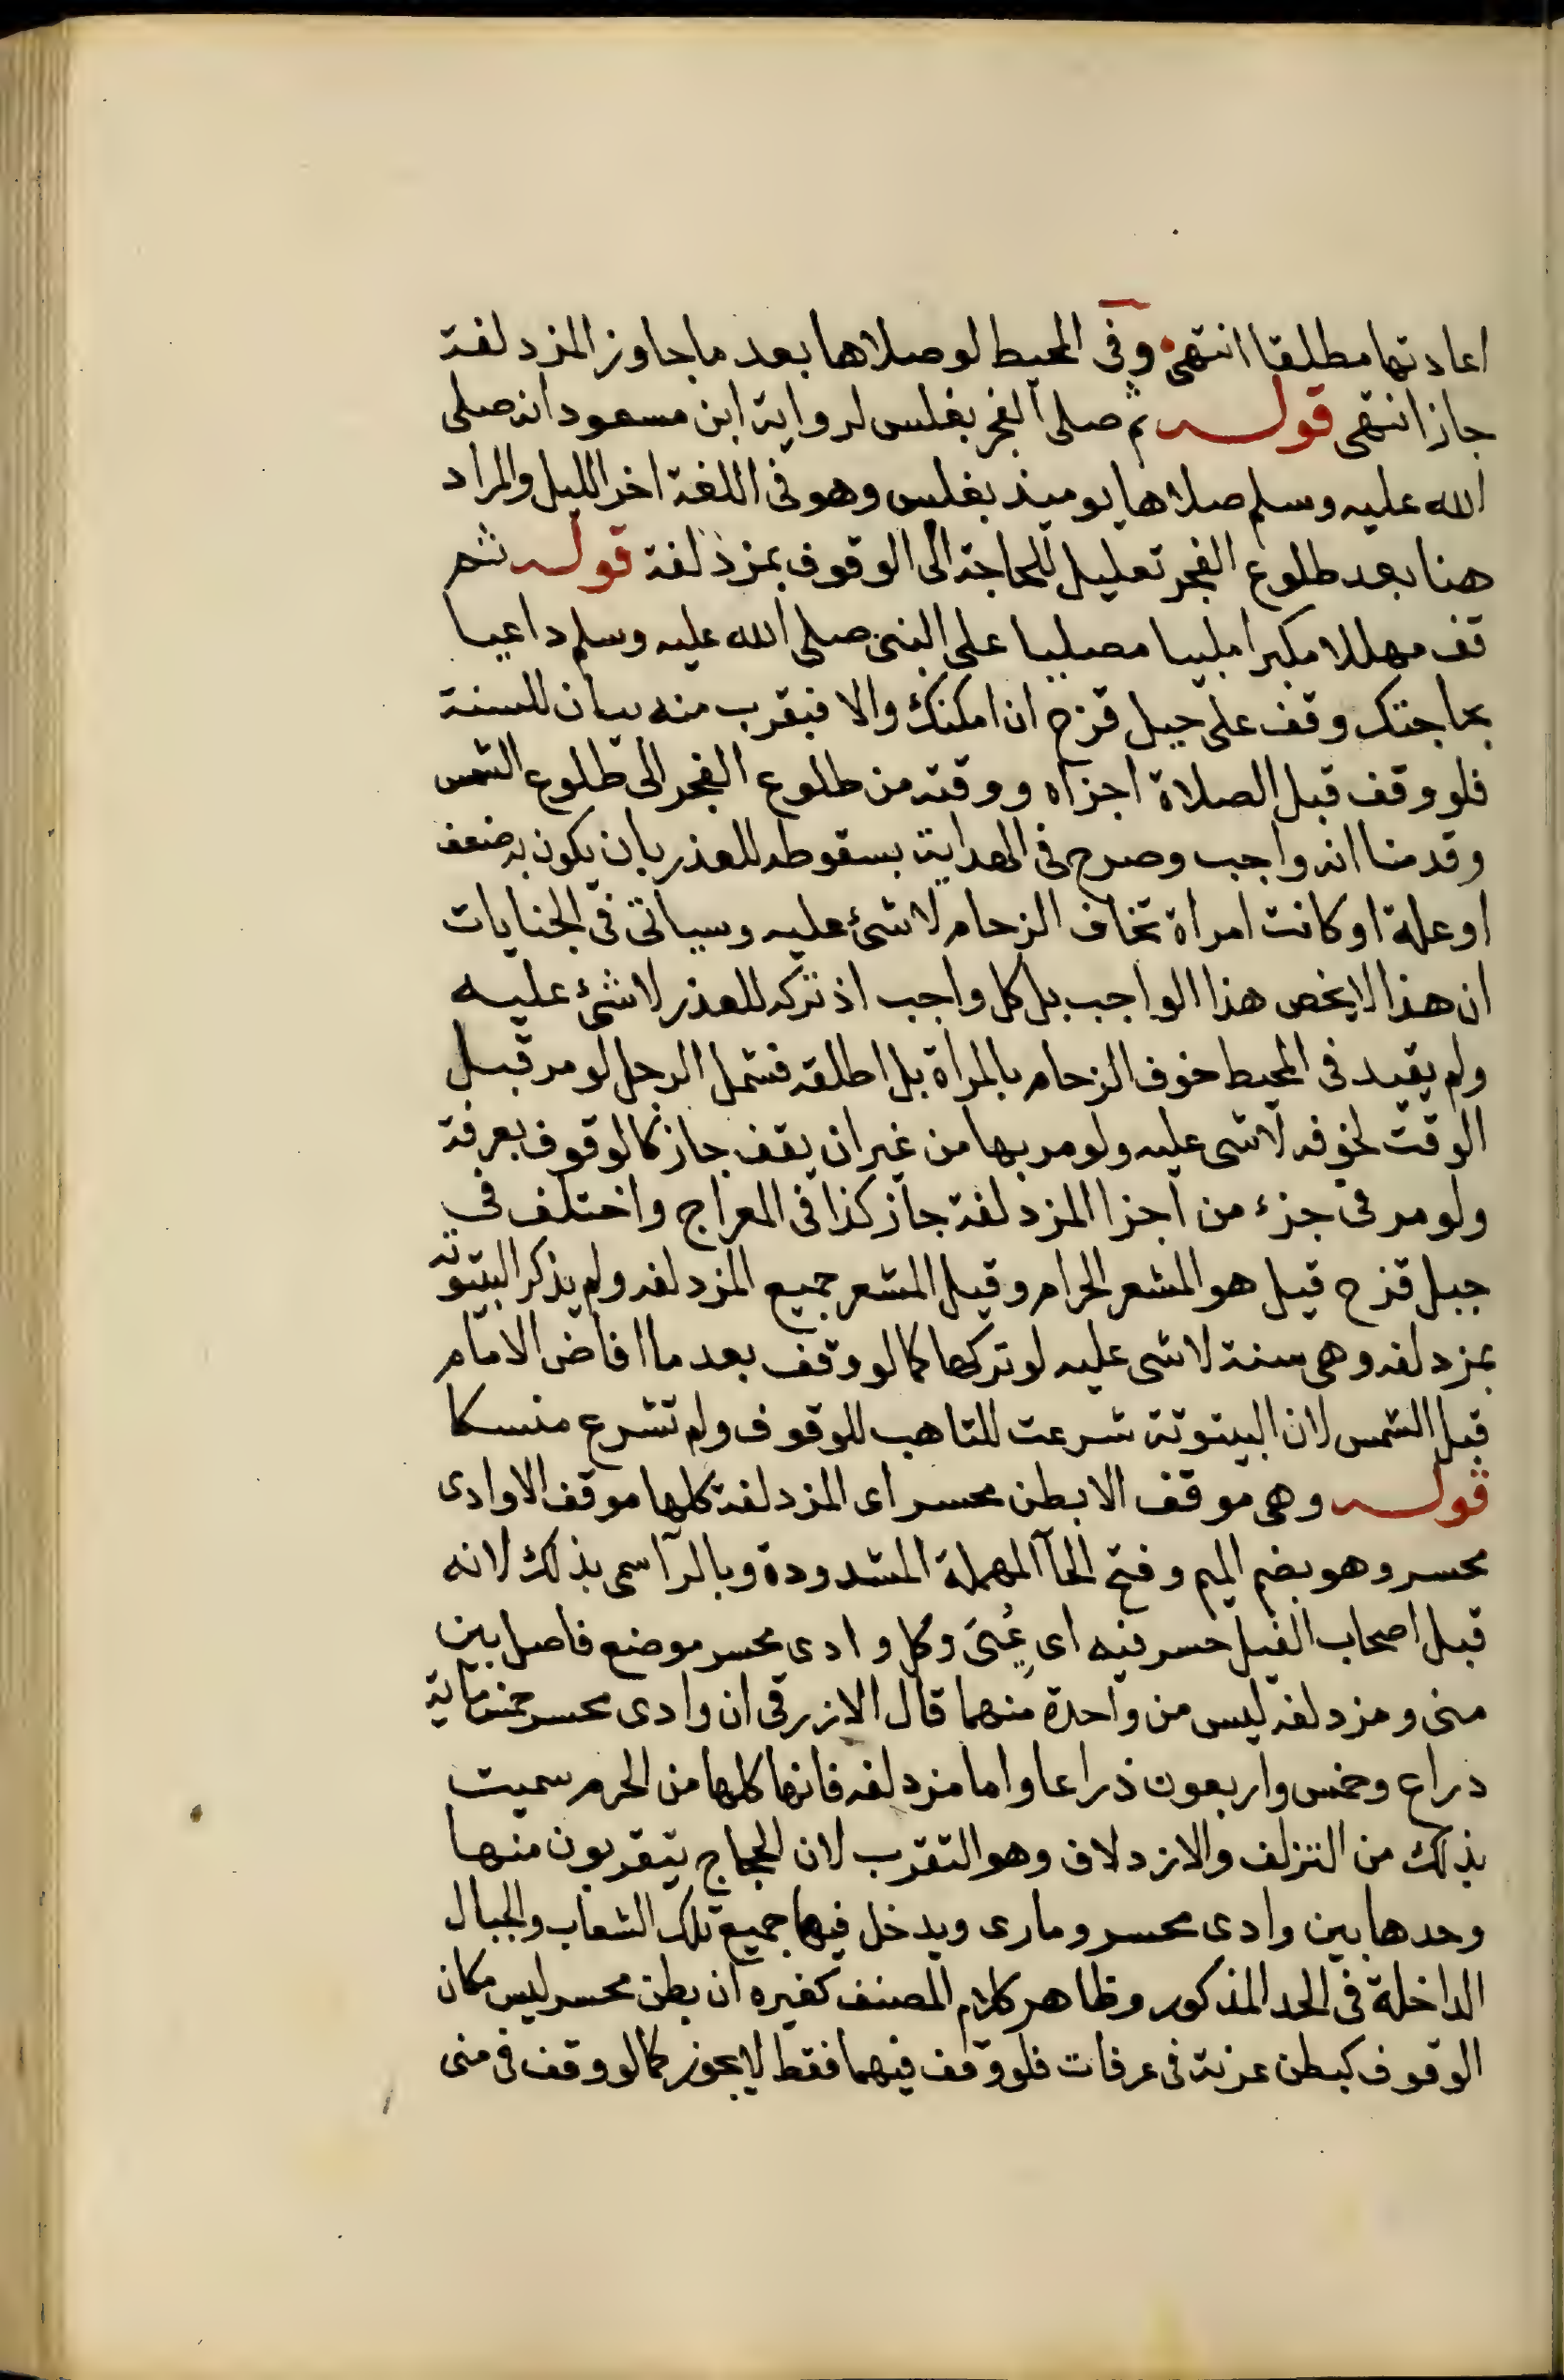 اعادتها مطلقا انتهى وفى المحيط لو صلاها بعد ما جاوز المزدلفة
جاز انتهى قوله ثم صلى الفجر بغلس لرواية ابن مسعود انه صلى
الله عليه وسلم صلاها يوميذ بغلس وهو فى اللغة اخر الليل والمراد
هنا بعد طلوع الفجر تعليل للحاجة الى الوقوف بمزدلفة قوله ثم
قف مهللا مكبرا ملبيا مصليا على النبى صلى الله عليه وسلم داعيا
بحاجتك وقف على جبل قزح ان امكنك والا فبقرب منه بيان للسنة
فلو وقف قبل الصلاة اجزاه ووقته من طلوع الفجر الى طلوع الشمس
وقدمنا انه واجب وصرح فى الهداية بسقوطه للعذر بان يكون به ضعف
او علة او كانت امراة تخاف الزحام لا شئ عليه وسياتى فى الجنايات
ان هذا لا يخص هذا الواجب بل كل واجب اذ تركه للعذر لا شئ عليه
ولم يقيد فى المحيط خوف الزحام بالمراة بل اطلقه فشمل الرجل لو مر قبل
الوقت لخوفه لا شى عليه ولو مر بها من غير ان يقف جاز كالوقوف بعرفة
ولو مر فى جزء من اجزا المزدلفة جاز كذا فى المعراج واختلف فى
جبل قزح قيل هو المشعر الحرام وقيل المشعر جميع المزدلفه ولم يذكر البيتوته
بمزدلفه وهى سنة لا شى عليه لو تركها كما لو وقف بعد ما افاض الامام
قبل الشمس لان البيتوتة شرعت للتاهب للوقوف ولم تشرع منسكا
قوله وهى موقف الا بطن محسر اى المزدلفة كلها موقف الا وادى
محسر وهو بضم الميم وفتح الحآ المهملة المشدودة وبالرآ سمى بذلك لانه
قبل اصحاب الفيل حسر فيه اى عُيىَ وكل وادى محسر موضع فاصل بين
منى ومزدلفه ليس من واحدة منهما قال الازرقى ان وادى محسر خمسماية
دراع وخمس واربعون ذراعا واما مزدلفه فانها كلها من الحرم سميت
بذلك من التزلف والازدلاف وهو التقرب لان الحجاج يتقربون منها
وحدها بين وادى محسر ومارى ويدخل فيها جميع تلك الشعاب والجبال
الداخلة فى الحد المذكور وظاهر كلام المصنف كغيره ان بطن محسر ليس مكان
الوقوف كبطن عرنة فى عرفات فلو وقف فيهما فقط لا يجوز كما لو وقف فى منى